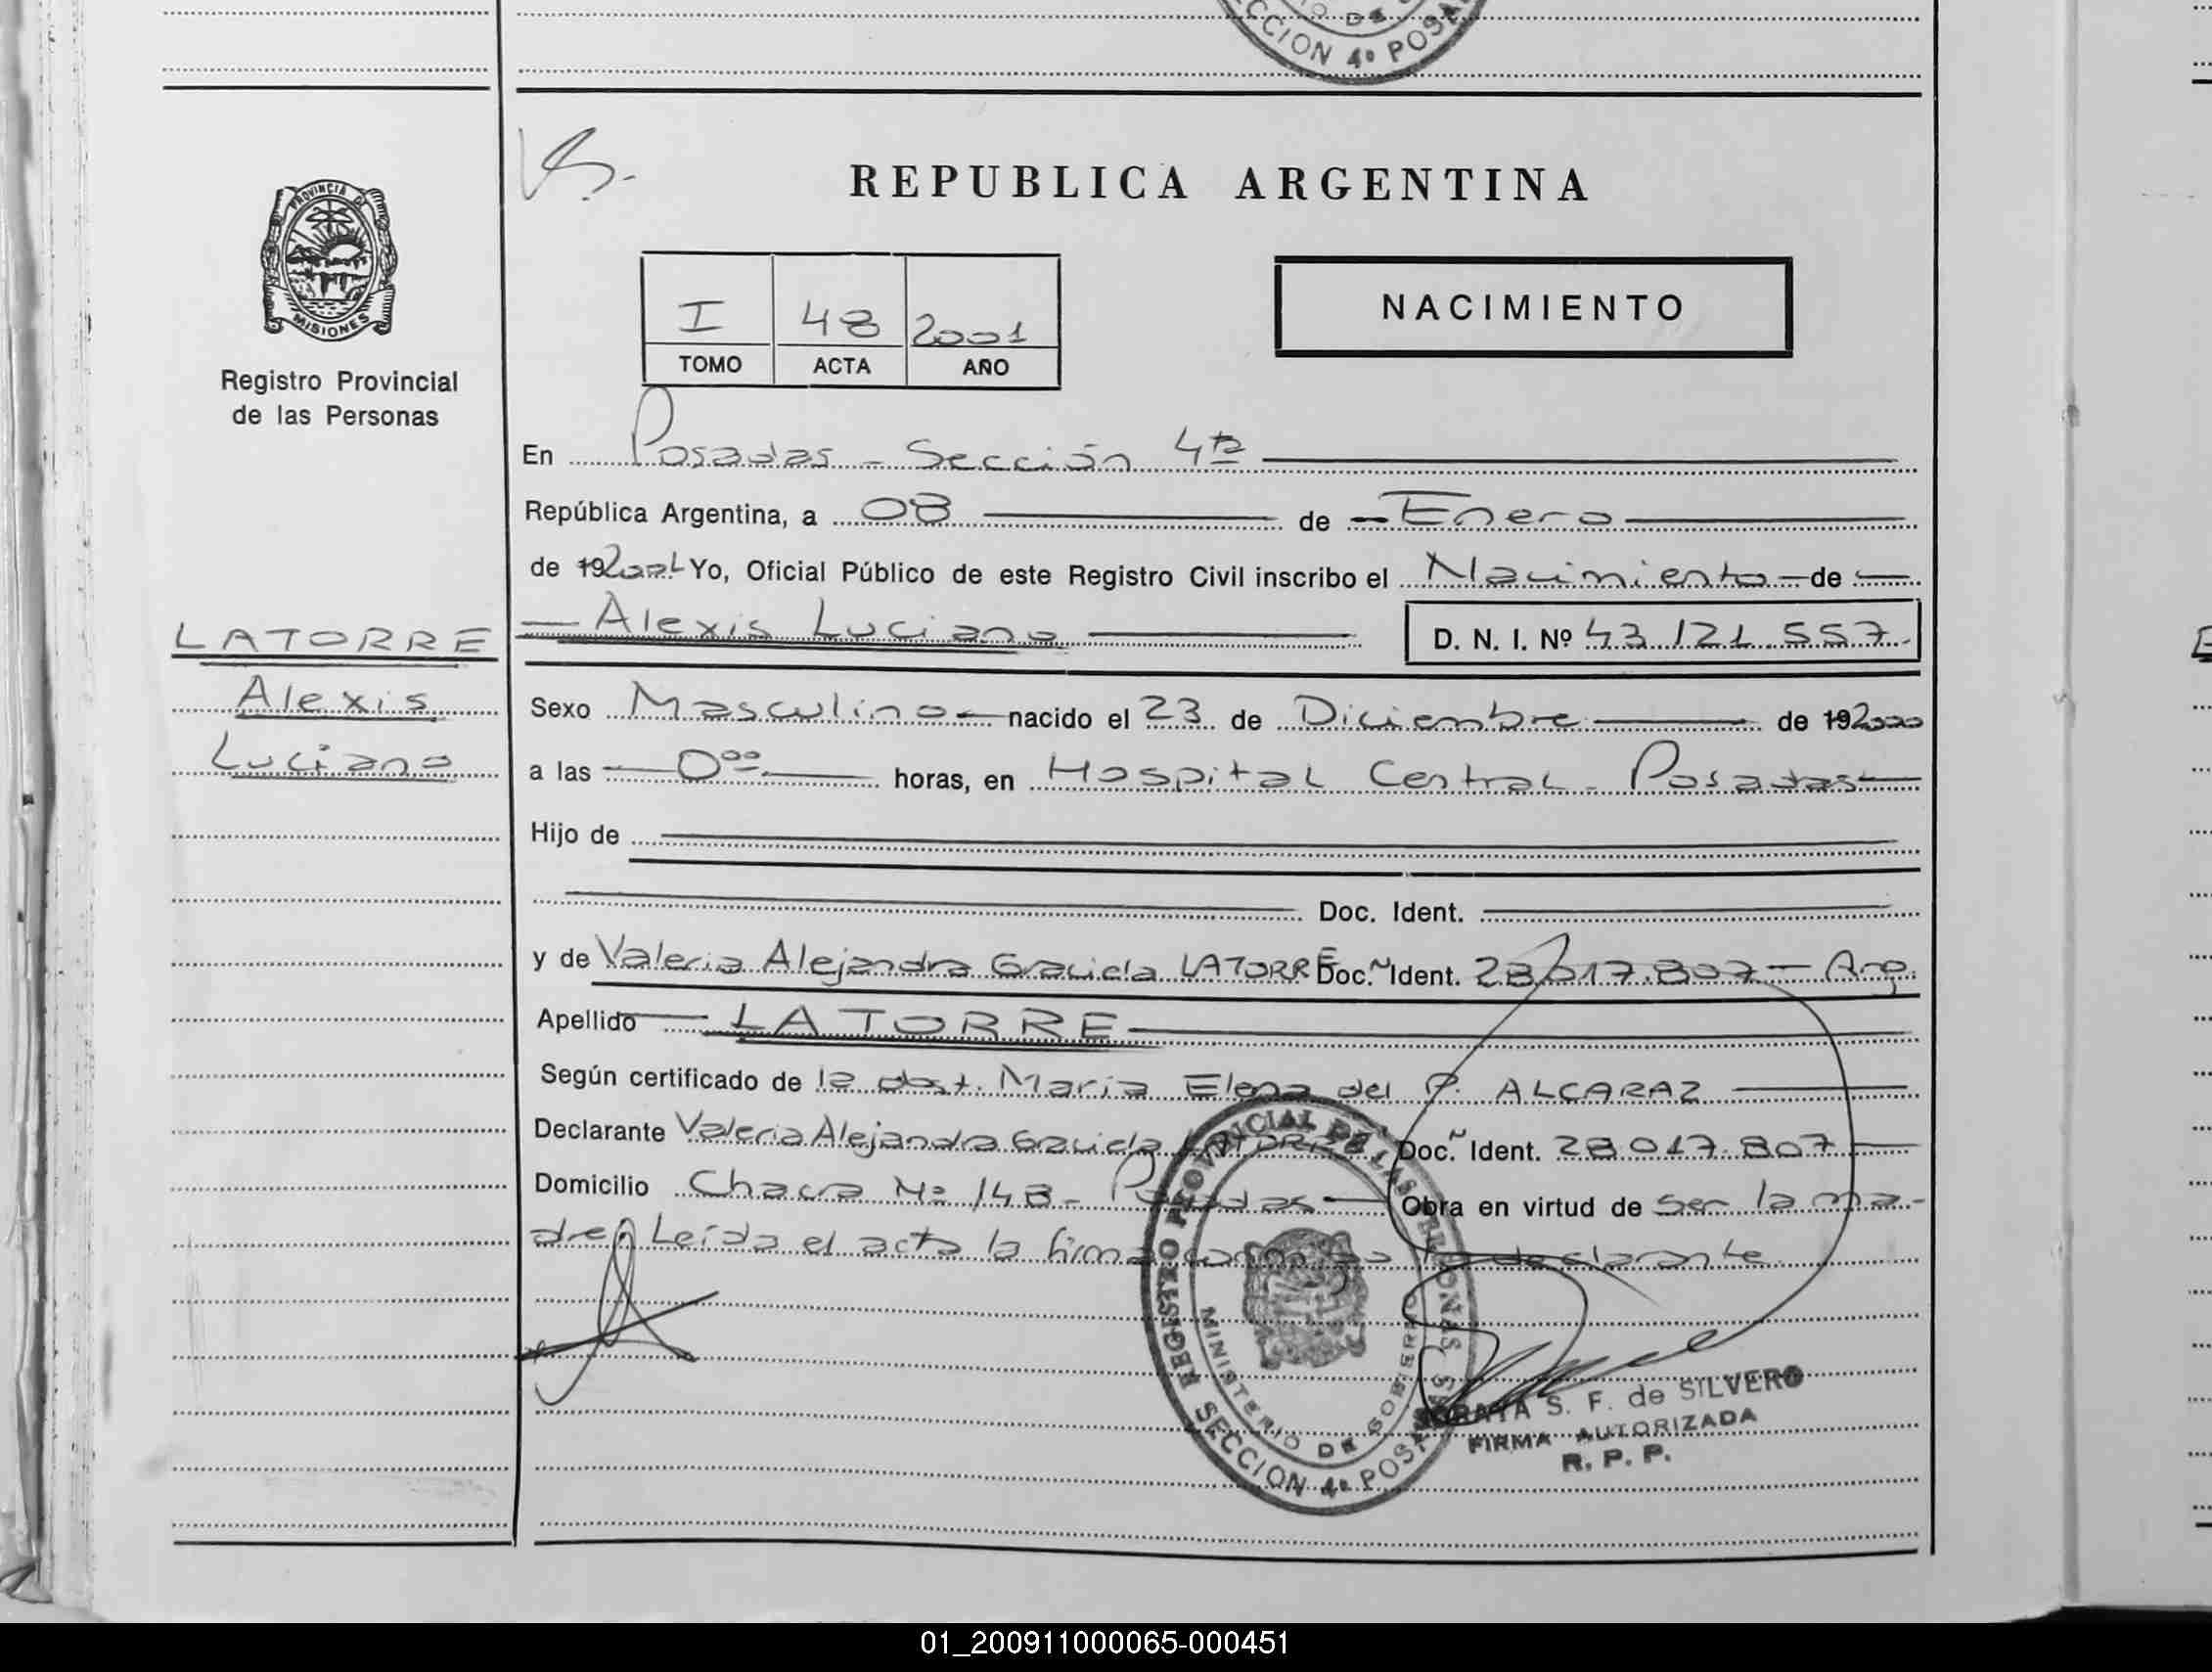 SECCION 4º POSA
REPUBLICA ARGENTINA
PROVINCIA DE
MISIONES
Registro Provincial
de las Personas
I 48 2001
TOMO ACTA AÑO
NACIMIENTO
En Posadas - Sección 4ta
República Argentina, a 08 de Enero
de 192001 Yo, Oficial Público de este Registro Civil inscribo el Nacimiento de
Alexis Luciano D. N. I. Nº 43.121.557.
LATORRE
Alexis
Luciano
Sexo Masculino nacido el 23 de Diciembre de 192000
a las 0⁰⁰ horas, en Hospital Central - Posadas
Hijo de
Doc. Ident.
y de Valeria Alejandra Graciela LATORRE Doc. Ident. 28.017.807 - Arg.
Apellido LATORRE
Según certificado de la obst. Maria Elena del P. ALCARAZ
Declarante Valeria Alejandra Graciela LATORRE Doc. Ident. 28.017.807
Domicilio Chacra Nº 148 - Posadas Obra en virtud de ser la ma-
dre. Leída el acta la firma la declarante.
REGISTRO PROVINCIAL DE LAS PERSONAS
MINISTERIO DE GOBIERNO
SECCION 4º POSADAS
SORAYA S. F. de SILVERO
FIRMA AUTORIZADA
R. P. P.
01_200911000065-000451